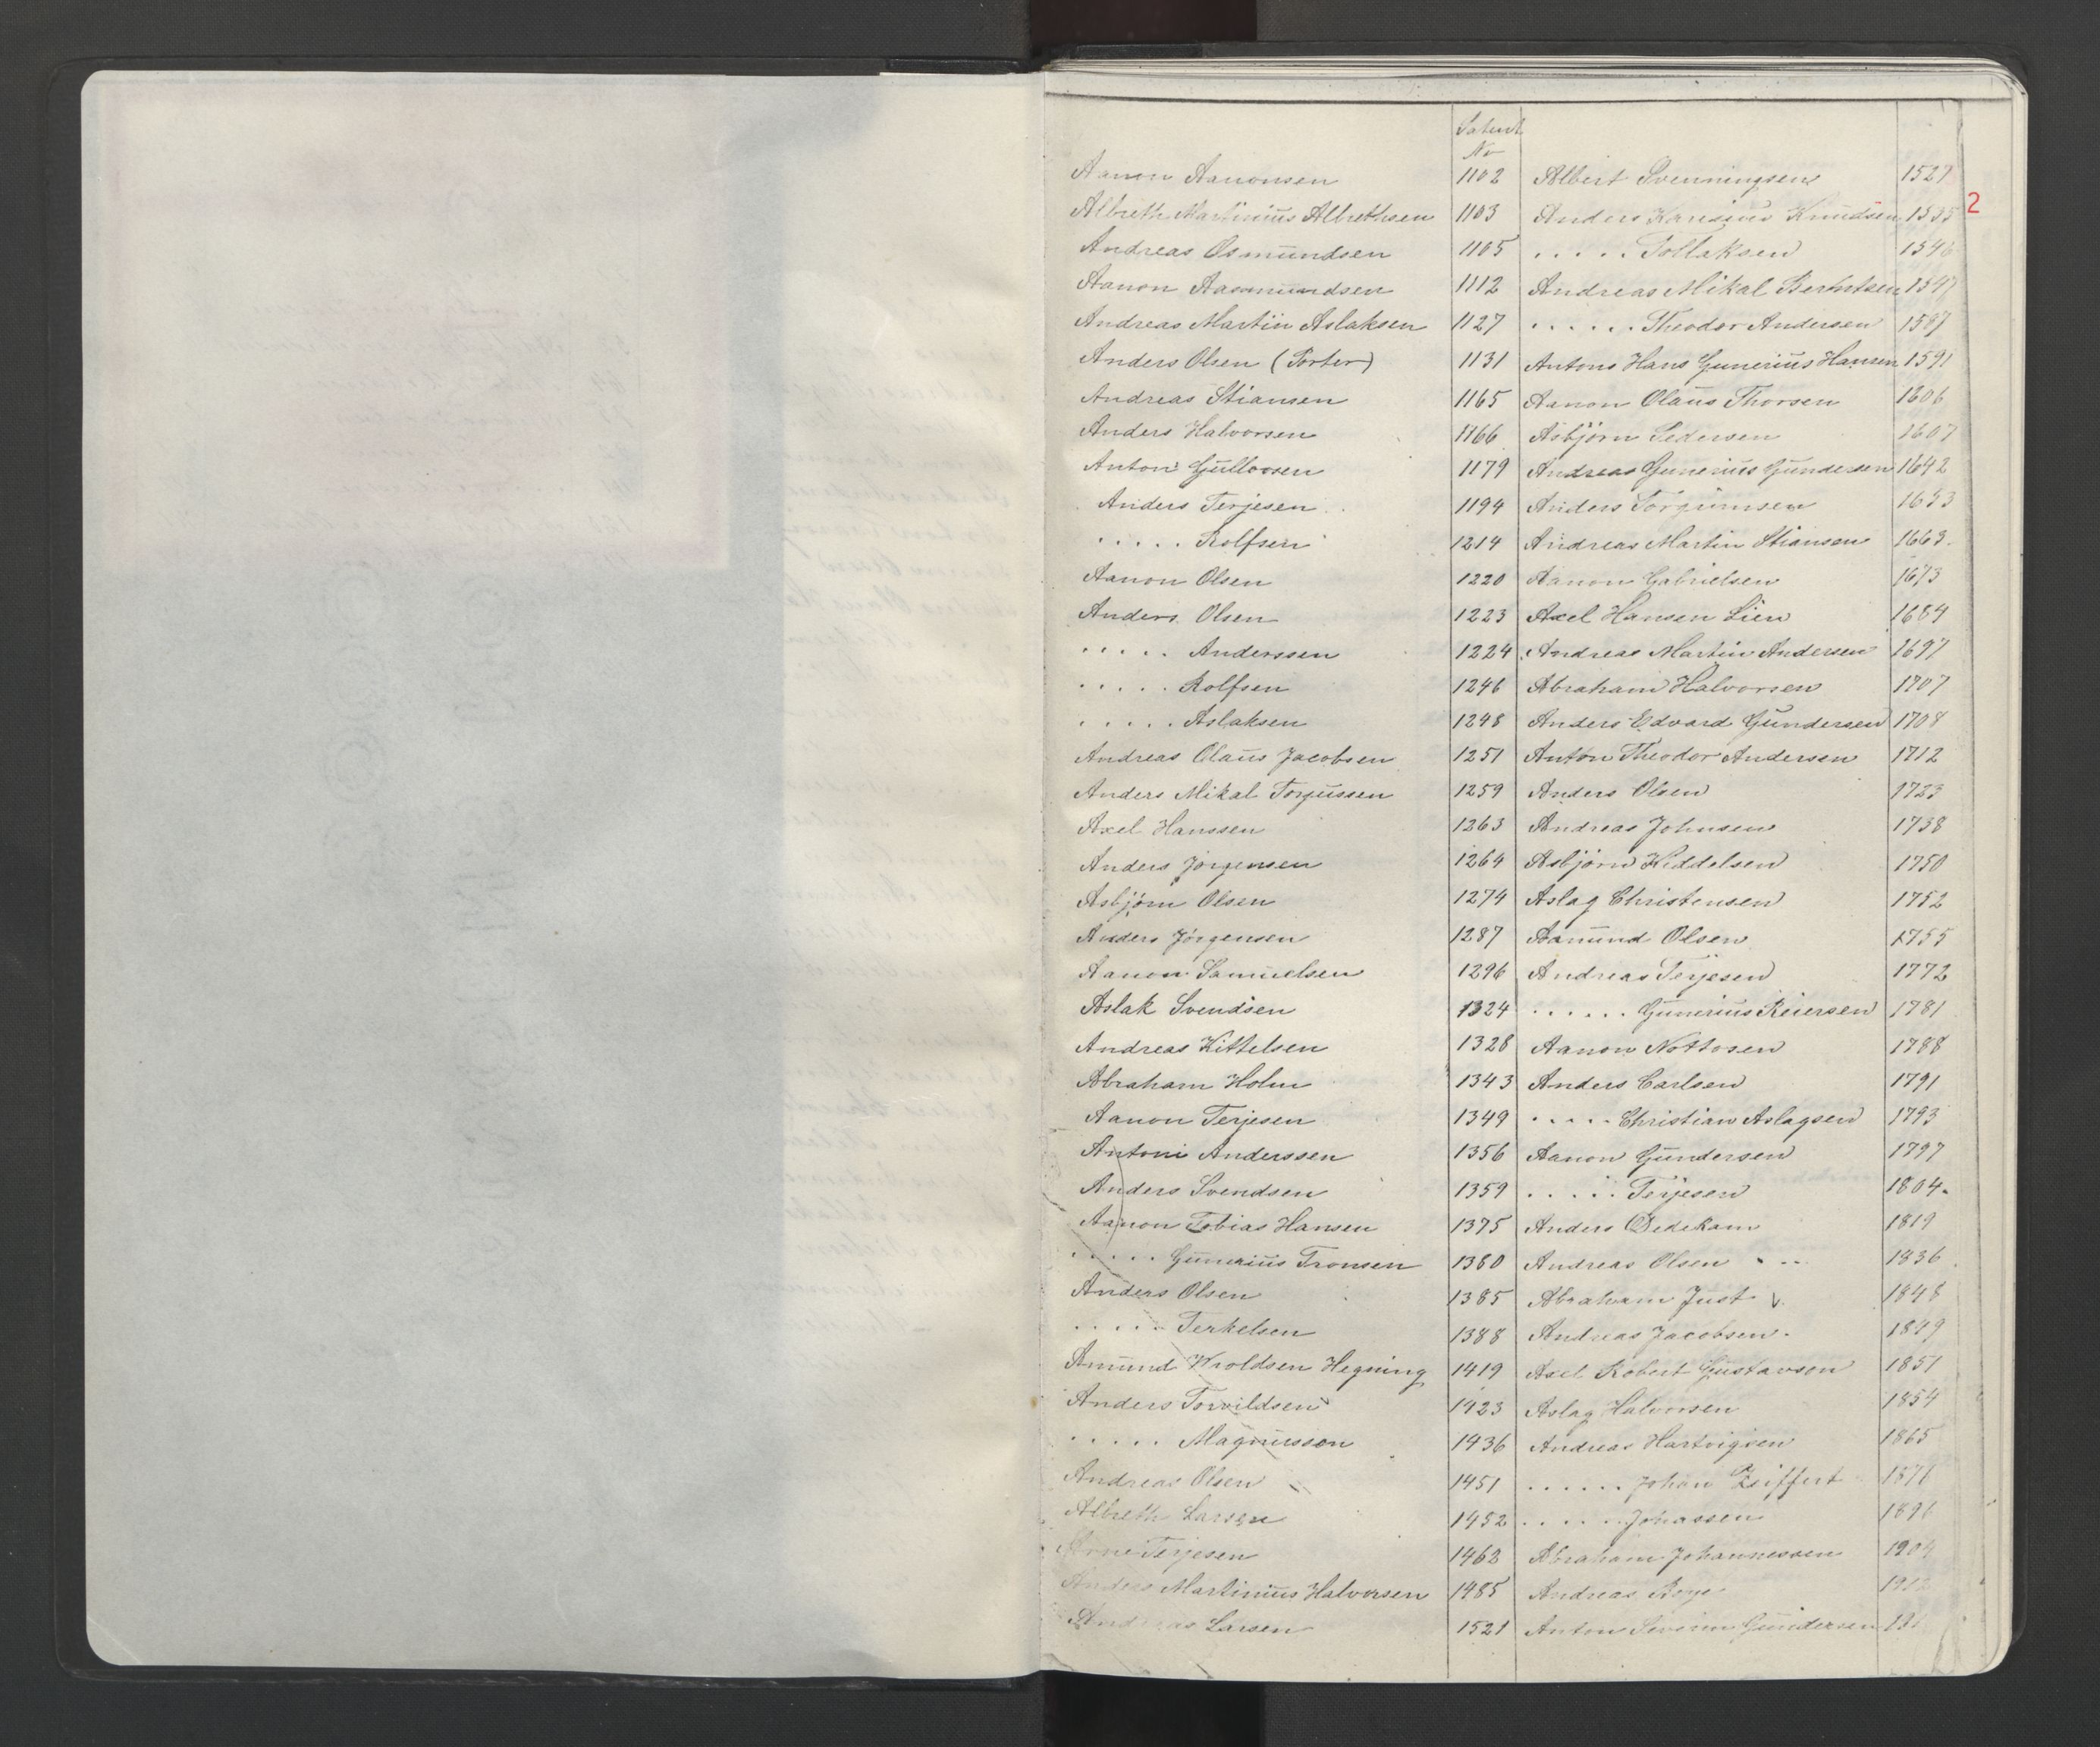 Patent
No
Aanon Aanonsen 1102
Albreth Martinius Albrethsen 1103
Andreas Osmundsen 1105
Aanon Aasmundsen 1112
Andreas Martin Aslaksen 1127
Anders Olsen (Porter) 1131
Andreas Stiansen 1165
Anders Halvorsen 1166
Anton Gullovsen 1179
Anders Terjesen 1194
..... Rolfsen 1214
Aanon Olsen 1220
Anders Olsen 1223
..... Anderssen 1224
..... Rolfsen 1246
..... Aslaksen 1248
Andreas Olaus Jacobsen 1251
Anders Mikal Torjussen 1259
Axel Hanssen 1263
Anders Jörgensen 1264
Asbjörn Olsen 1274
Anders Jörgensen 1287
Aanon Samuelsen 1296
Aslak Svendsen 1324
Andreas Kittelsen 1328
Abraham Holm 1343
Aanon Terjesen 1349
Antoni Anderssen 1356
Anders Svendsen 1359
Aanon Tobias Hansen 1375
..... Gunerius Tronsen 1380
Anders Olsen 1385
..... Terkelsen 1388
Amund Wroldsen Hegning 1419
Anders Torvildsen 1423
..... Magnussen 1436
Andreas Olsen 1451
Albreth Larsen 1452
Arne Terjesen 1462
Martinius Halvorsen 1485
Andreas Larsen 1521
Albert Svenningsen 1527
Anders Knudsen 1535
..... Tollaksen 1546
Andreas Mikal Berntsen 1547
...... Theodor Andersen 1587
Antons Hans Gunerius Hansen 1591
Aanon Olaus Thorsen 1606
Asbjörn Pedersen 1607
Andreas Gunerius Gundersen 1642
Anders Torgrimsen 1653
Andreas Martin Stiansen 1663.
Aanon Gabrielsen 1673
Axel Hansen Lien 1684
Andreas Martin Andersen 1697
Abraham Halvorsen 1707
Anders Edvard Gundersen 1708
Anton Theodor Andersen 1712
Anders Olsen 1723
Andreas Johnsen 1738
Asbjörn Kiddelsen 1750
Aslag Christensen 1752
Aamund Olsen 1755
Andreas Terjesen 1772
...... Gunerius Reiersen 1781
Aanon Nottosen 1788
Anders Carlsen 1791
..... Christian Aslagsen 1793
Aanon Gundersen 1797
..... Terjesen 1804.
Anders Dedekam 1819
Andreas Olsen 1836
Abraham Just 1848
Andreas Jacobsen. 1849
Axel Robert Gustavson 1851
Aslag Halvorsen 1854
Andreas Hartvigsen 1865
...... Johan
..... Johassen
Abraham Johannessen 1904
Andreas
Anton Severin Gundersen
2